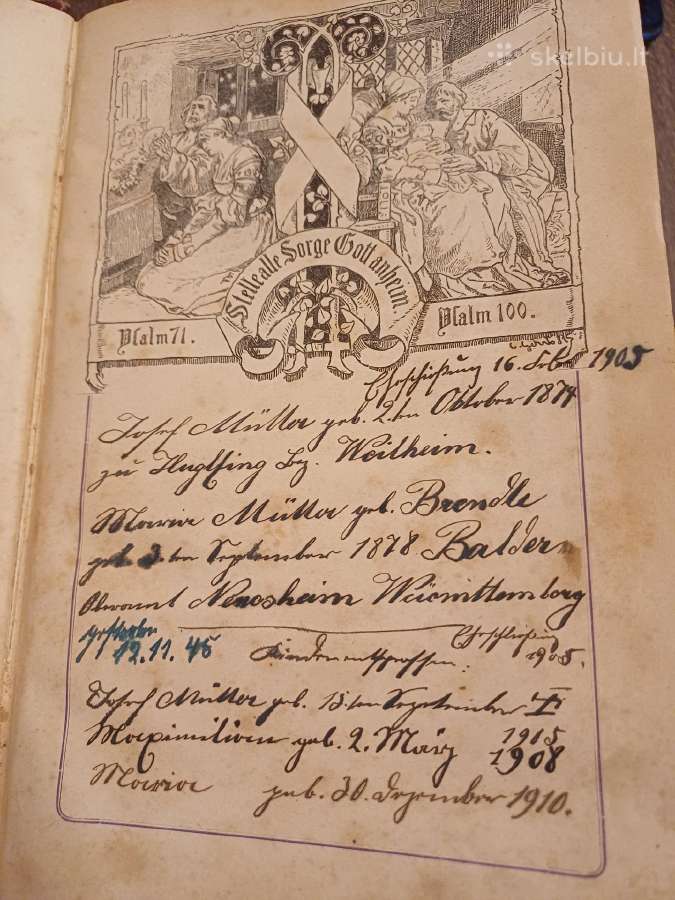 skelbiu.lt
Stelle alle Sorge Gott anheim.
Psalm 71.
Psalm 100.
Eheschießung 16. Febr 1905
Josef Müller geb. 2.ten Oktober 1874
zu Huglfing bz. Weilheim.
Maria Müller geb. Brendle
geb 3ten September 1878 Baldern
Oberamt Neresheim Würmittemberg
gestorben
12.11.45
Eheschließung
1905.
Kinder entsprossen:
Josef Müller geb. 15.ten September
1915
Maximilian geb. 2. März 1908
Maria geb. 30. Dezember 1910.